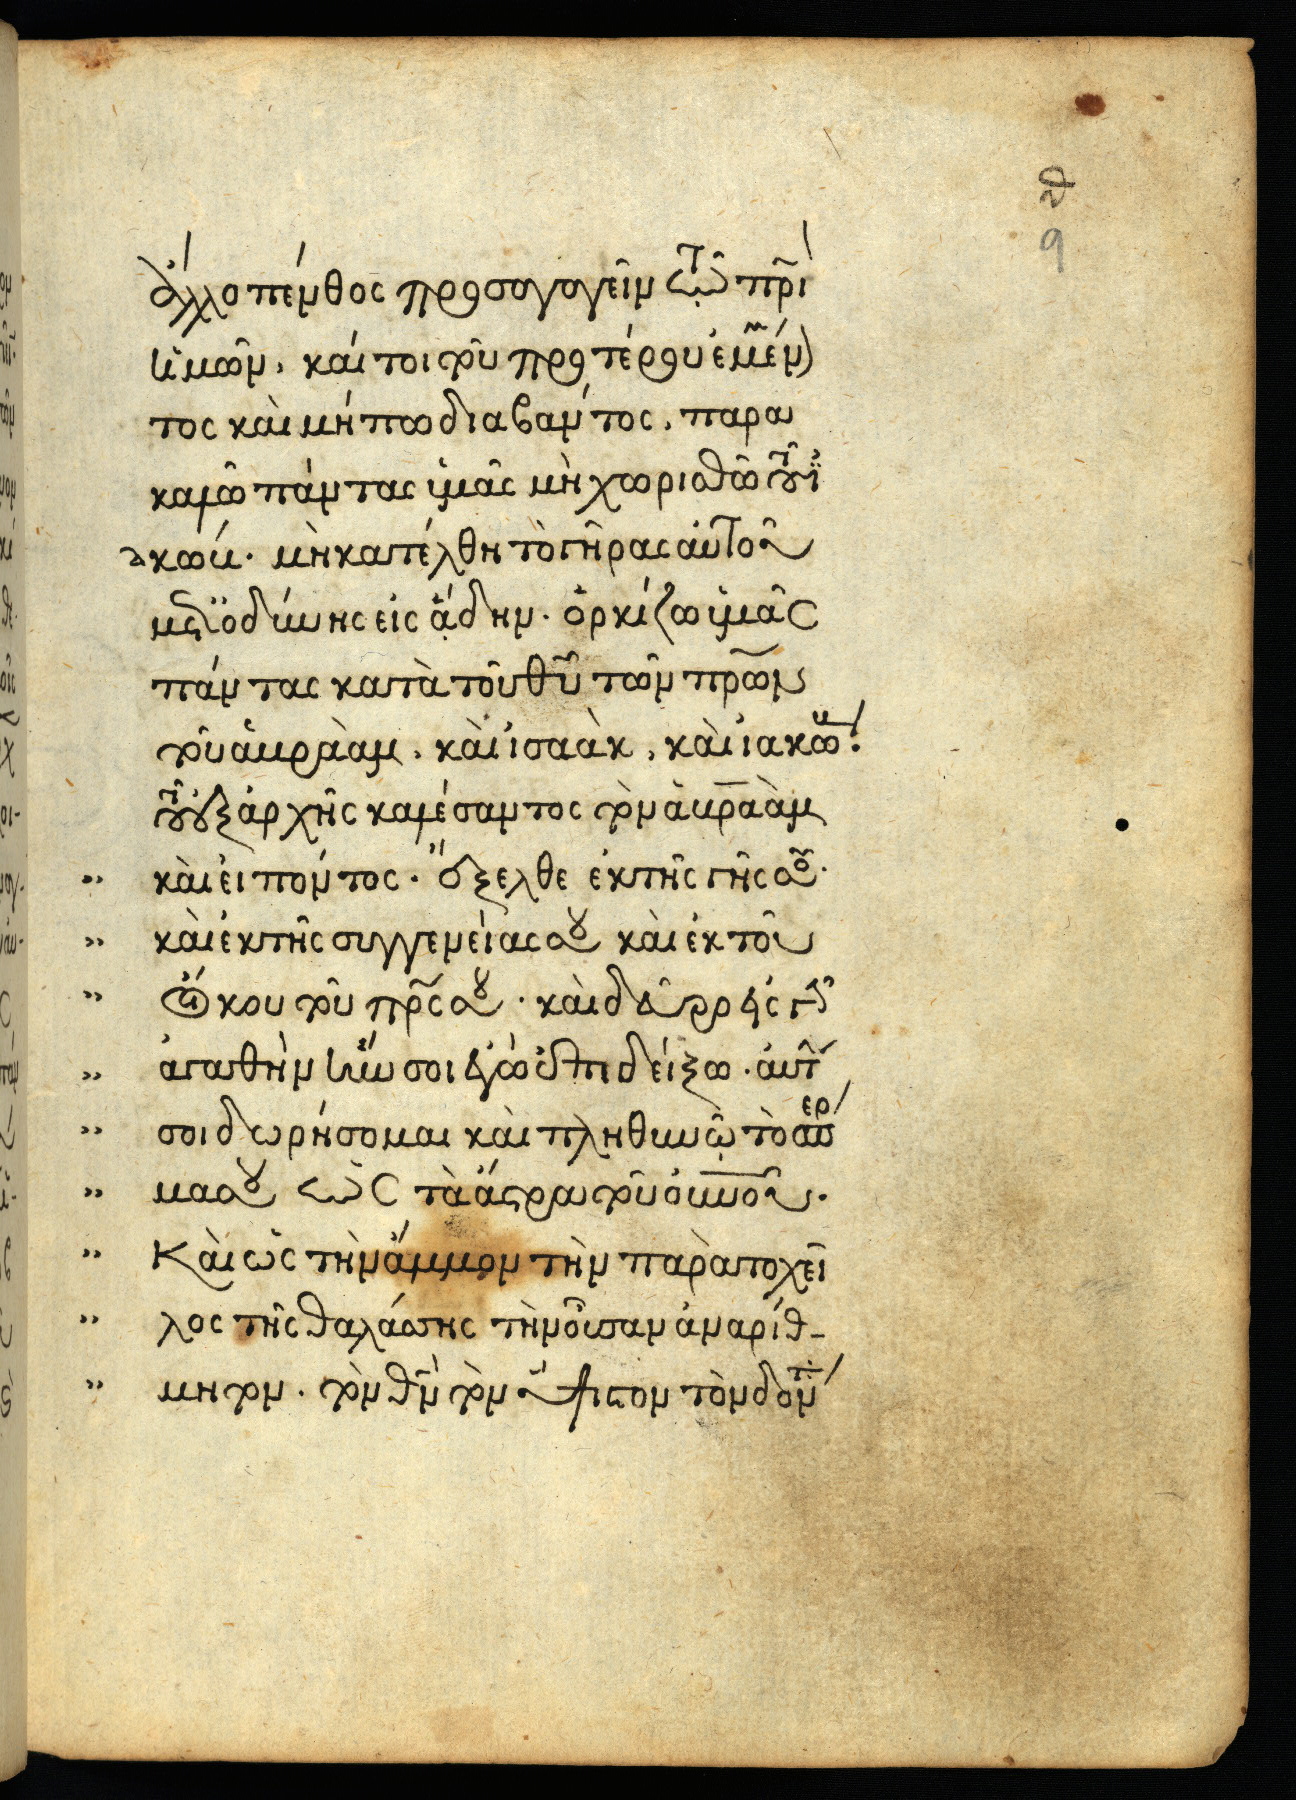 θ
9
ἄλλο πένθος προσαγαγεῖν τῷ πρ̅ι
ἡμῶν, καίτοι τοῦ προτέρου ἐμμέν
τος καὶ μήπω διαβάντος, παρα
καλῶ πάντας ὑμᾶς μὴ χωρισθῶ τοῦ ἰ
ακώβ. μὴ κατέλθη τὸ γῆρας αὐτοῦ
μετ ὀδύνης εἰς ᾅδην. ὁρκίζω ὑμᾶς
πάντας κατὰ τοῦ θ̅υ τῶν πρ̅ων
τοῦ ἀβραὰμ, καὶ ἰσαὰκ, καὶ ἰακώβ.
τοῦ ἐξ ἀρχῆς καλέσαντος τὸν ἀβραὰμ
" καὶ εἰπόντος. ἔξελθε ἐκ τῆς γῆς σου.
" καὶ ἐκ τῆς συγγενείας σου καὶ ἐκ τοῦ
" οἴκου τοῦ πρ̅ς σου. καὶ δεῦρο εἰς γῆν
" ἀγαθὴν ἣν σοι ἐγὼ ἐπιδείξω. αὐτ
" σοι δωρήσομαι καὶ πληθυνῶ τὸ σπέρ
" μα σου ὡς τὰ ἄστρα τοῦ οὐ̅νοῦ.
" Καὶ ὡς τὴν ἄμμον τὴν παρὰ τὸ χεῖ
" λος τῆς θαλάσσης τὴν οὖσαν ἀναρίθ-
" μητον. τὸν θ̅ν τὸν ὕψιστον τὸν δόντ